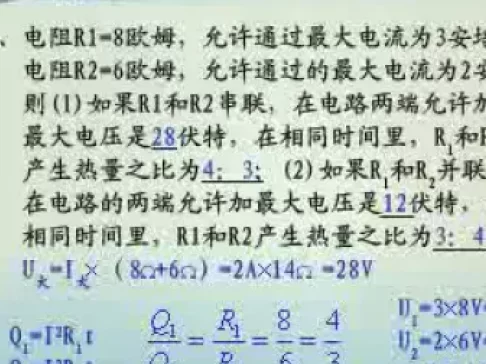 、电阻R1=8欧姆，允许通过最大电流为3安培
电阻R2=6欧姆，允许通过的最大电流为2安
则(1)如果R1和R2串联，在电路两端允许加
最大电压是28伏特，在相同时间里，R₁和R
产生热量之比为4：3；(2)如果R₁和R₂并联
在电路的两端允许加最大电压是12伏特，
相同时间里，R1和R2产生热量之比为3：4
U大=I大×（8Ω+6Ω）=2A×14Ω=28V
U₁=3×8V=
Q₁=I²R₁t Q₁/Q = R₁/R = 8/6 = 4/3
U₂=2×6V=